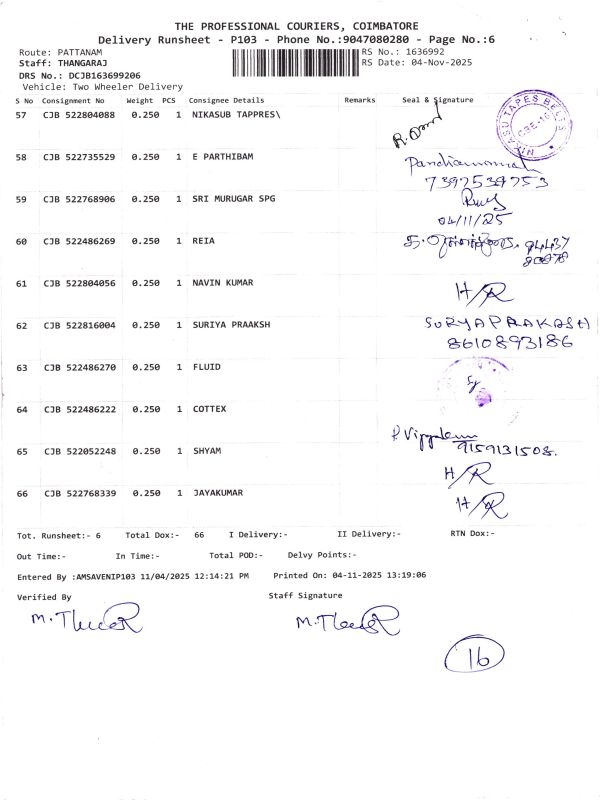 THE PROFESSIONAL COURIERS, COIMBATORE
Delivery Runsheet - P103 - Phone No.:9047080280 - Page No.:6
Route: PATTANAM
RS No.: 1636992
Staff: THANGARAJ
RS Date: 04-Nov-2025
DRS No.: DCJB163699206
Vehicle: Two Wheeler Delivery
S No Consignment No Weight PCS Consignee Details Remarks Seal & Signature
57 CJB 522804088 0.250 1 NIKASUB TAPPRES\
58 CJB 522735529 0.250 1 E PARTHIBAM
7397539753
59 CJB 522768906 0.250 1 SRI MURUGAR SPG
04/11/25
60 CJB 522486269 0.250 1 REIA
94437
61 CJB 522804056 0.250 1 NAVIN KUMAR H/R
62 CJB 522816004 0.250 1 SURIYA PRAAKSH SURYAPRAKASH
8610893186
63 CJB 522486270 0.250 1 FLUID
64 CJB 522486222 0.250 1 COTTEX
65 CJB 522052248 0.250 1 SHYAM 9159131508.
H/R
66 CJB 522768339 0.250 1 JAYAKUMAR H/R
Tot. Runsheet:- 6 Total Dox:- 66 I Delivery:- II Delivery:- RTN Dox:-
Out Time:- In Time:- Total POD:- Delvy Points:-
Entered By :AMSAVENIP103 11/04/2025 12:14:21 PM Printed On: 04-11-2025 13:19:06
Verified By Staff Signature
16